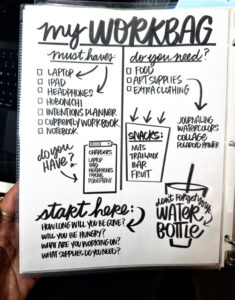 my WORKBAG
must haves
LAPTOP
IPAD
HEADPHONES
HOBONICHI
INTENTIONS PLANNER
CURRENTLY WORKBOOK
NOTEBOOK
do you need?
FOOD
ART SUPPLIES
EXTRA CLOTHING
JOURNALING
WATERCOLORS
COLLAGE
POLAROID PRINTER
do you
HAVE?
CHARGERS
LAPTOP
IPAD
HEADPHONES
SNACKS:
NUTS
TRAIL MIX
BAR
FRUIT
start here:
HOW LONG WILL YOU BE GONE?
WILL YOU BE HUNGRY?
WHAT ARE YOU WORKING ON?
WHAT SUPPLIES DO YOU NEED?
don't forget your
WATER
BOTTLE